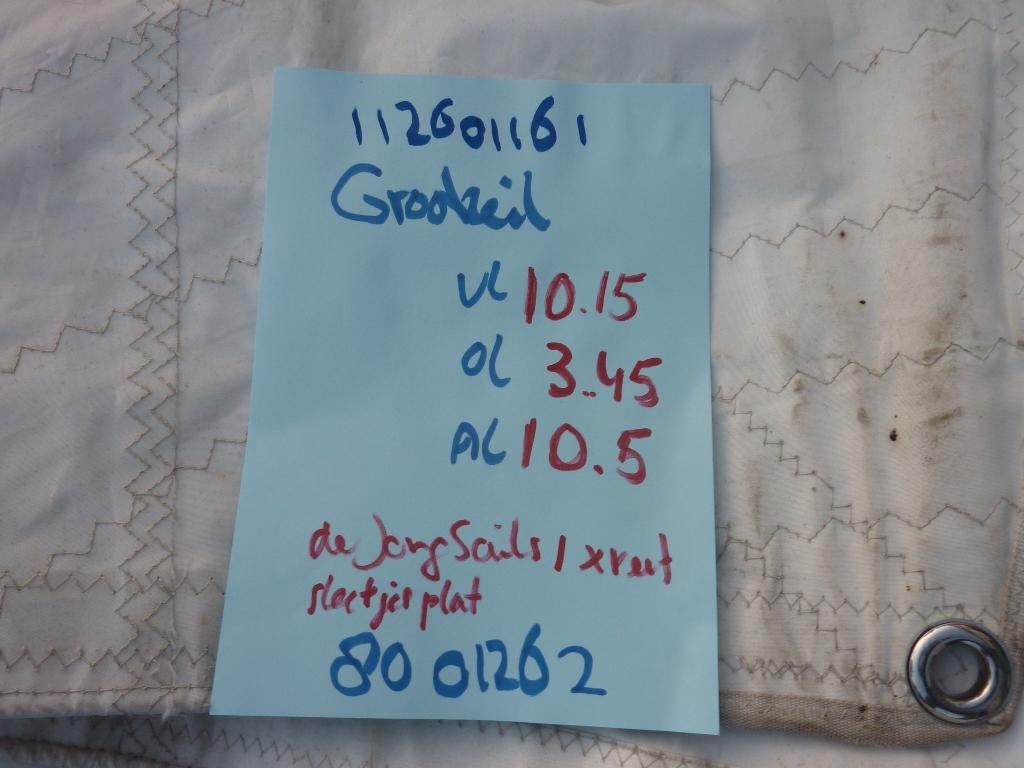 112601161
Grootzeil
VL 10.15
OL 3.45
AL 10.5
de Jong Sails 1 x reef
sleetjes plat
8001262